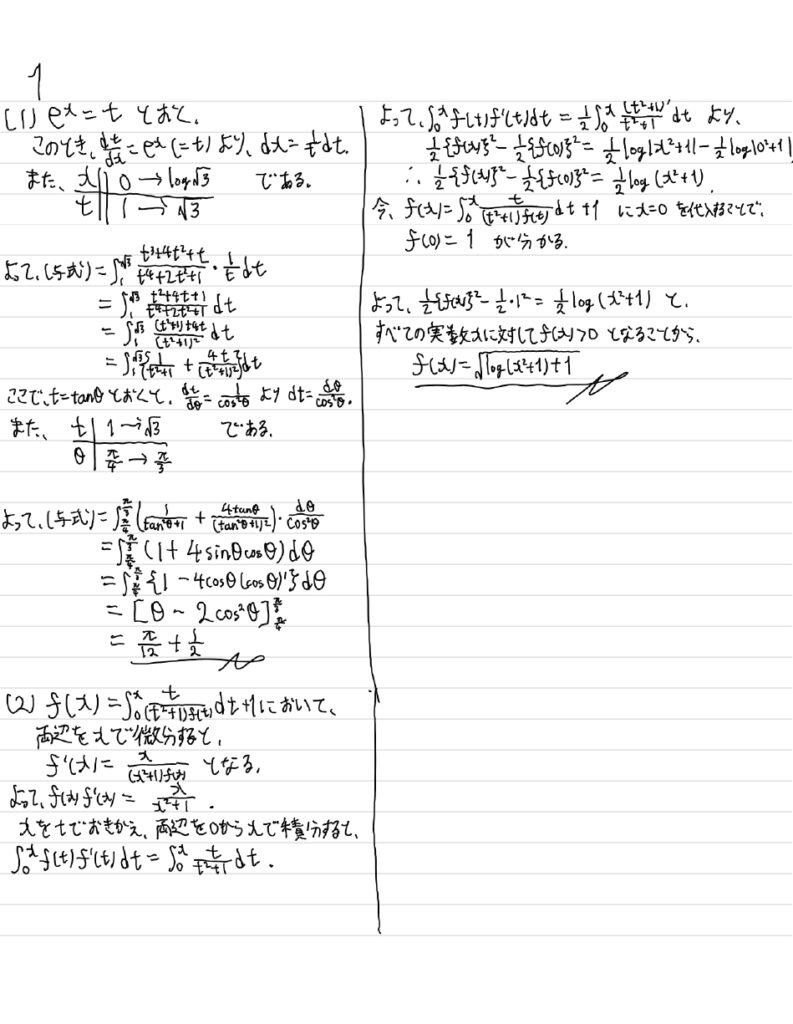 1
(1) e^x = t とおく.
このとき, dt/dx = e^x (=t) より, dx = 1/t dt.
また, x | 0 → log√3 である.
t | 1 → √3
よって, (与式) = ∫_1^√3 (t³+4t²+t)/(t⁴+2t²+1) · 1/t dt
= ∫_1^√3 (t²+4t+1)/(t⁴+2t²+1) dt
= ∫_1^√3 ((t²+1)+4t)/(t²+1)² dt
= ∫_1^√3 {1/(t²+1) + 4t/(t²+1)²} dt
ここで, t=tanθ とおくと, dt/dθ = 1/cos²θ より dt = dθ/cos²θ.
また, t | 1 → √3 である.
θ | π/4 → π/3
よって, (与式) = ∫_{π/4}^{π/3} (1/(tan²θ+1) + 4tanθ/(tan²θ+1)²) · dθ/cos²θ
= ∫_{π/4}^{π/3} (1 + 4sinθcosθ) dθ
= ∫_{π/4}^{π/3} {1 - 4cosθ(cosθ)'} dθ
= [θ - 2cos²θ]_{π/4}^{π/3}
= π/12 + 1/2
(2) f(x) = ∫_0^x t/((t²+1)f(t)) dt + 1 において,
両辺を x で微分すると,
f'(x) = x/((x²+1)f(x)) となる.
よって, f(x)f'(x) = x/(x²+1) .
x を t でおきかえ, 両辺を 0 から x で積分すると,
∫_0^x f(t)f'(t)dt = ∫_0^x t/(t²+1) dt .
よって, ∫_0^x f(t)f'(t)dt = 1/2 ∫_0^x (t²+1)'/(t²+1) dt より,
1/2{f(x)}² - 1/2{f(0)}² = 1/2 log|x²+1| - 1/2 log|0²+1|
∴ 1/2{f(x)}² - 1/2{f(0)}² = 1/2 log(x²+1).
今, f(x) = ∫_0^x t/((t²+1)f(t)) dt + 1 に x=0 を代入することで,
f(0) = 1 が分かる.
よって, 1/2{f(x)}² - 1/2·1² = 1/2 log(x²+1) と,
すべての実数 x に対して f(x)>0 となることから,
f(x) = √(log(x²+1)+1)